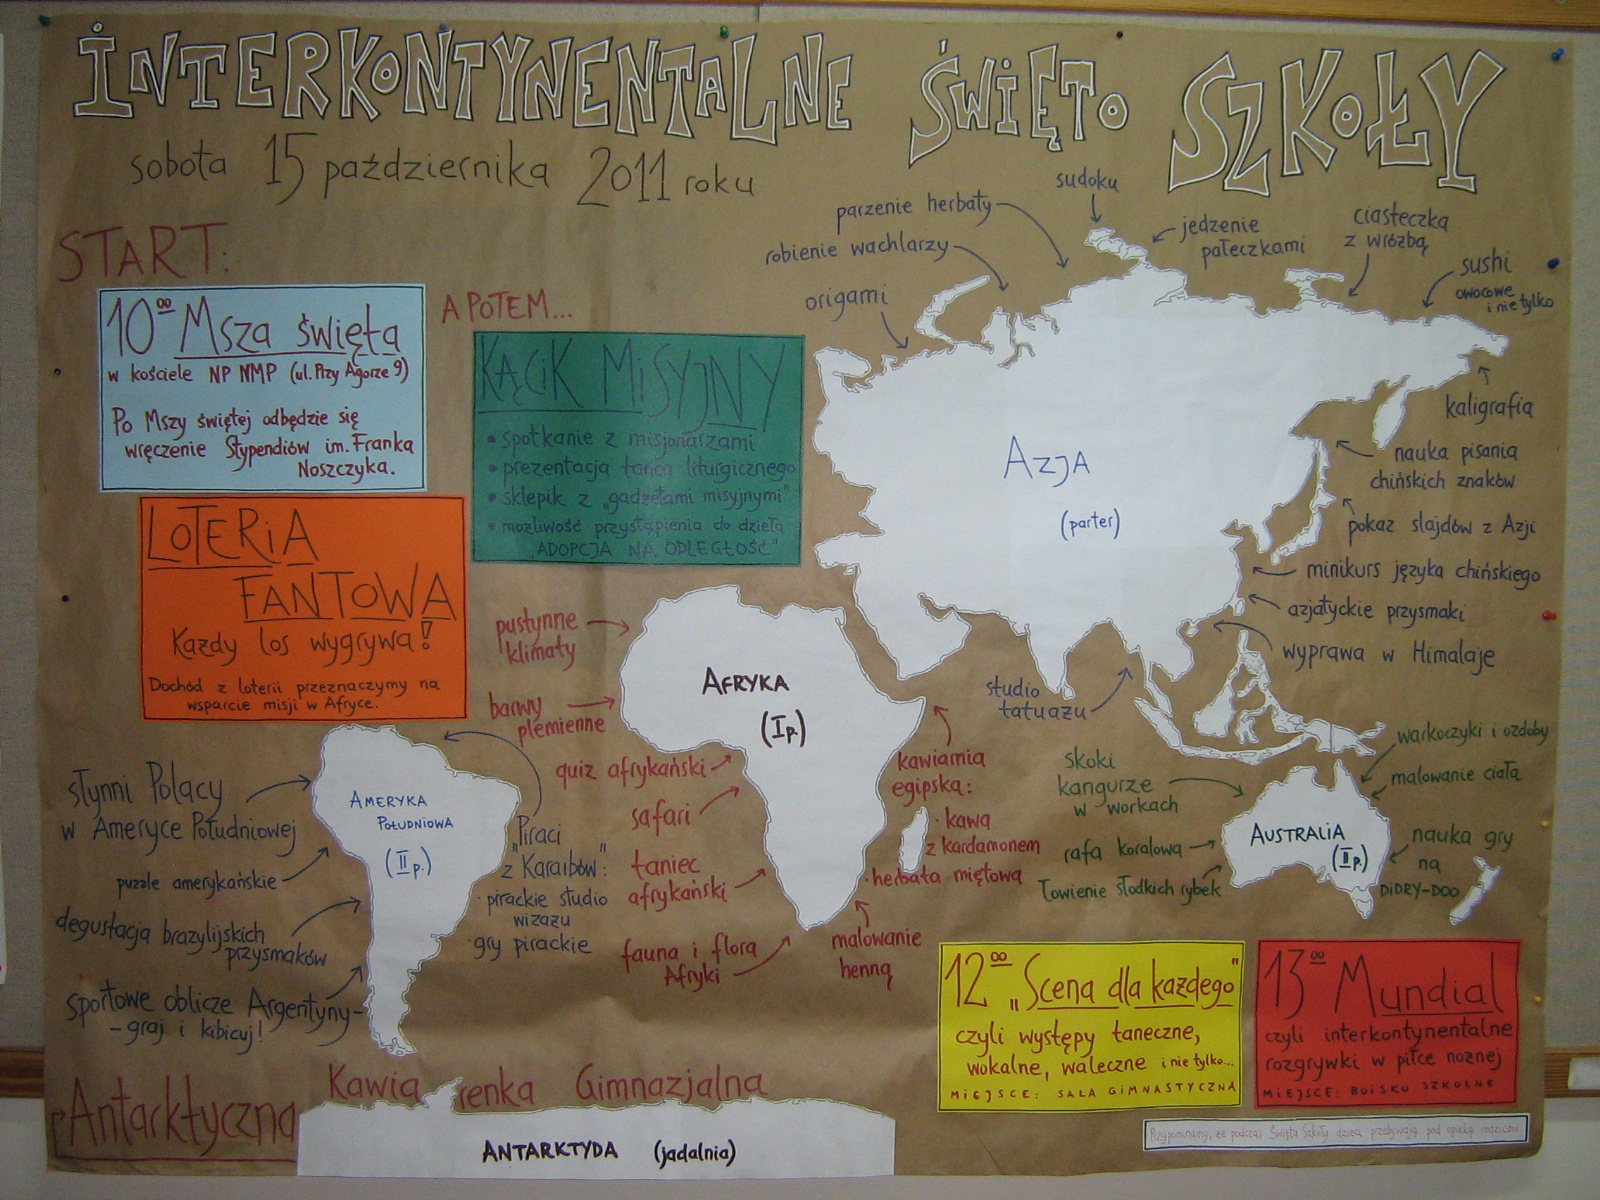 INTERKONTYNENTALNE ŚWIĘTO SZKOŁY
sobota 15 października 2011 roku
START:
10⁰⁰ Msza święta
w kościele NP NMP (ul. Przy Agorze 9)
Po Mszy świętej odbędzie się
wręczenie Stypendiów im. Franka
Noszczyka.
A POTEM...
KĄCIK MISYJNY
• spotkanie z misjonarzami
• prezentacja tańca liturgicznego
• sklepik z „gadżetami misyjnymi"
• możliwość przystąpienia do dzieła
„ADOPCJA NA ODLEGŁOŚĆ"
LOTERIA
FANTOWA
Każdy los wygrywa!
Dochód z loterii przeznaczymy na
wsparcie misji w Afryce.
AZJA
(parter)
origami
robienie wachlarzy
parzenie herbaty
sudoku
jedzenie
pałeczkami
ciasteczka
z wróżbą
sushi
owocowe
i nie tylko
kaligrafia
nauka pisania
chińskich znaków
pokaz slajdów z Azji
minikurs języka chińskiego
azjatyckie przysmaki
wyprawa w Himalaje
studio
tatuażu
AFRYKA
(I p.)
pustynne
klimaty
barwy
plemienne
quiz afrykański
safari
taniec
afrykański
fauna i flora
Afryki
malowanie
henną
kawiarnia
egipska:
· kawa
z kardamonem
· herbata miętowa
AMERYKA
POŁUDNIOWA
(II p.)
słynni Polacy
w Ameryce Południowej
puzzle amerykańskie
degustacja brazylijskich
przysmaków
sportowe oblicze Argentyny-
- graj i kibicuj!
„Piraci
z Karaibów":
· pirackie studio
wizażu
· gry pirackie
AUSTRALIA
(II p.)
skoki
kangurze
w workach
rafa koralowa
łowienie słodkich rybek
warkoczyki i ozdoby
malowanie ciała
nauka gry
na
DIDRY-DOO
12⁰⁰ „Scena dla każdego"
czyli występy taneczne,
wokalne, waleczne i nie tylko...
MIEJSCE: SALA GIMNASTYCZNA
13⁰⁰ Mundial
czyli interkontynentalne
rozgrywki w piłce nożnej
MIEJSCE: BOISKO SZKOLNE
Przypominamy, że podczas Święta Szkoły dzieci przebywają pod opieką rodziców.
Antarktyczna Kawiarenka Gimnazjalna
ANTARKTYDA (jadalnia)